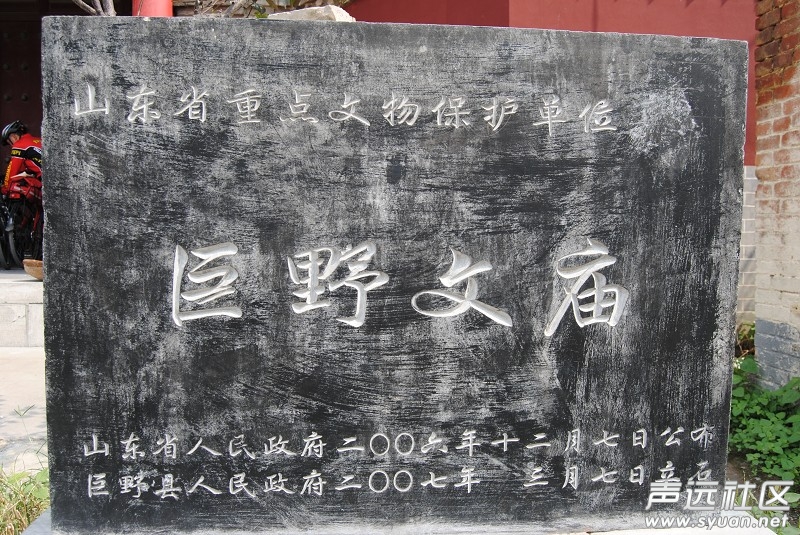 山东省重点文物保护单位
巨野文庙
山东省人民政府二〇〇六年十二月七日公布
巨野县人民政府二〇〇七年 三月七日立石
声远社区
www.syuan.net